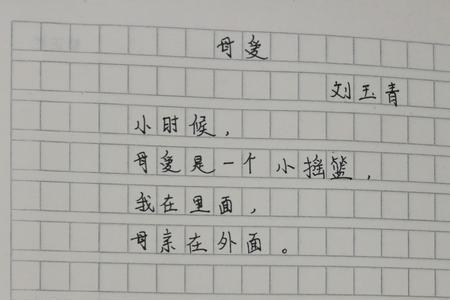 母爱
刘玉青
小时候，
母爱是一个小摇篮，
我在里面，
母亲在外面。